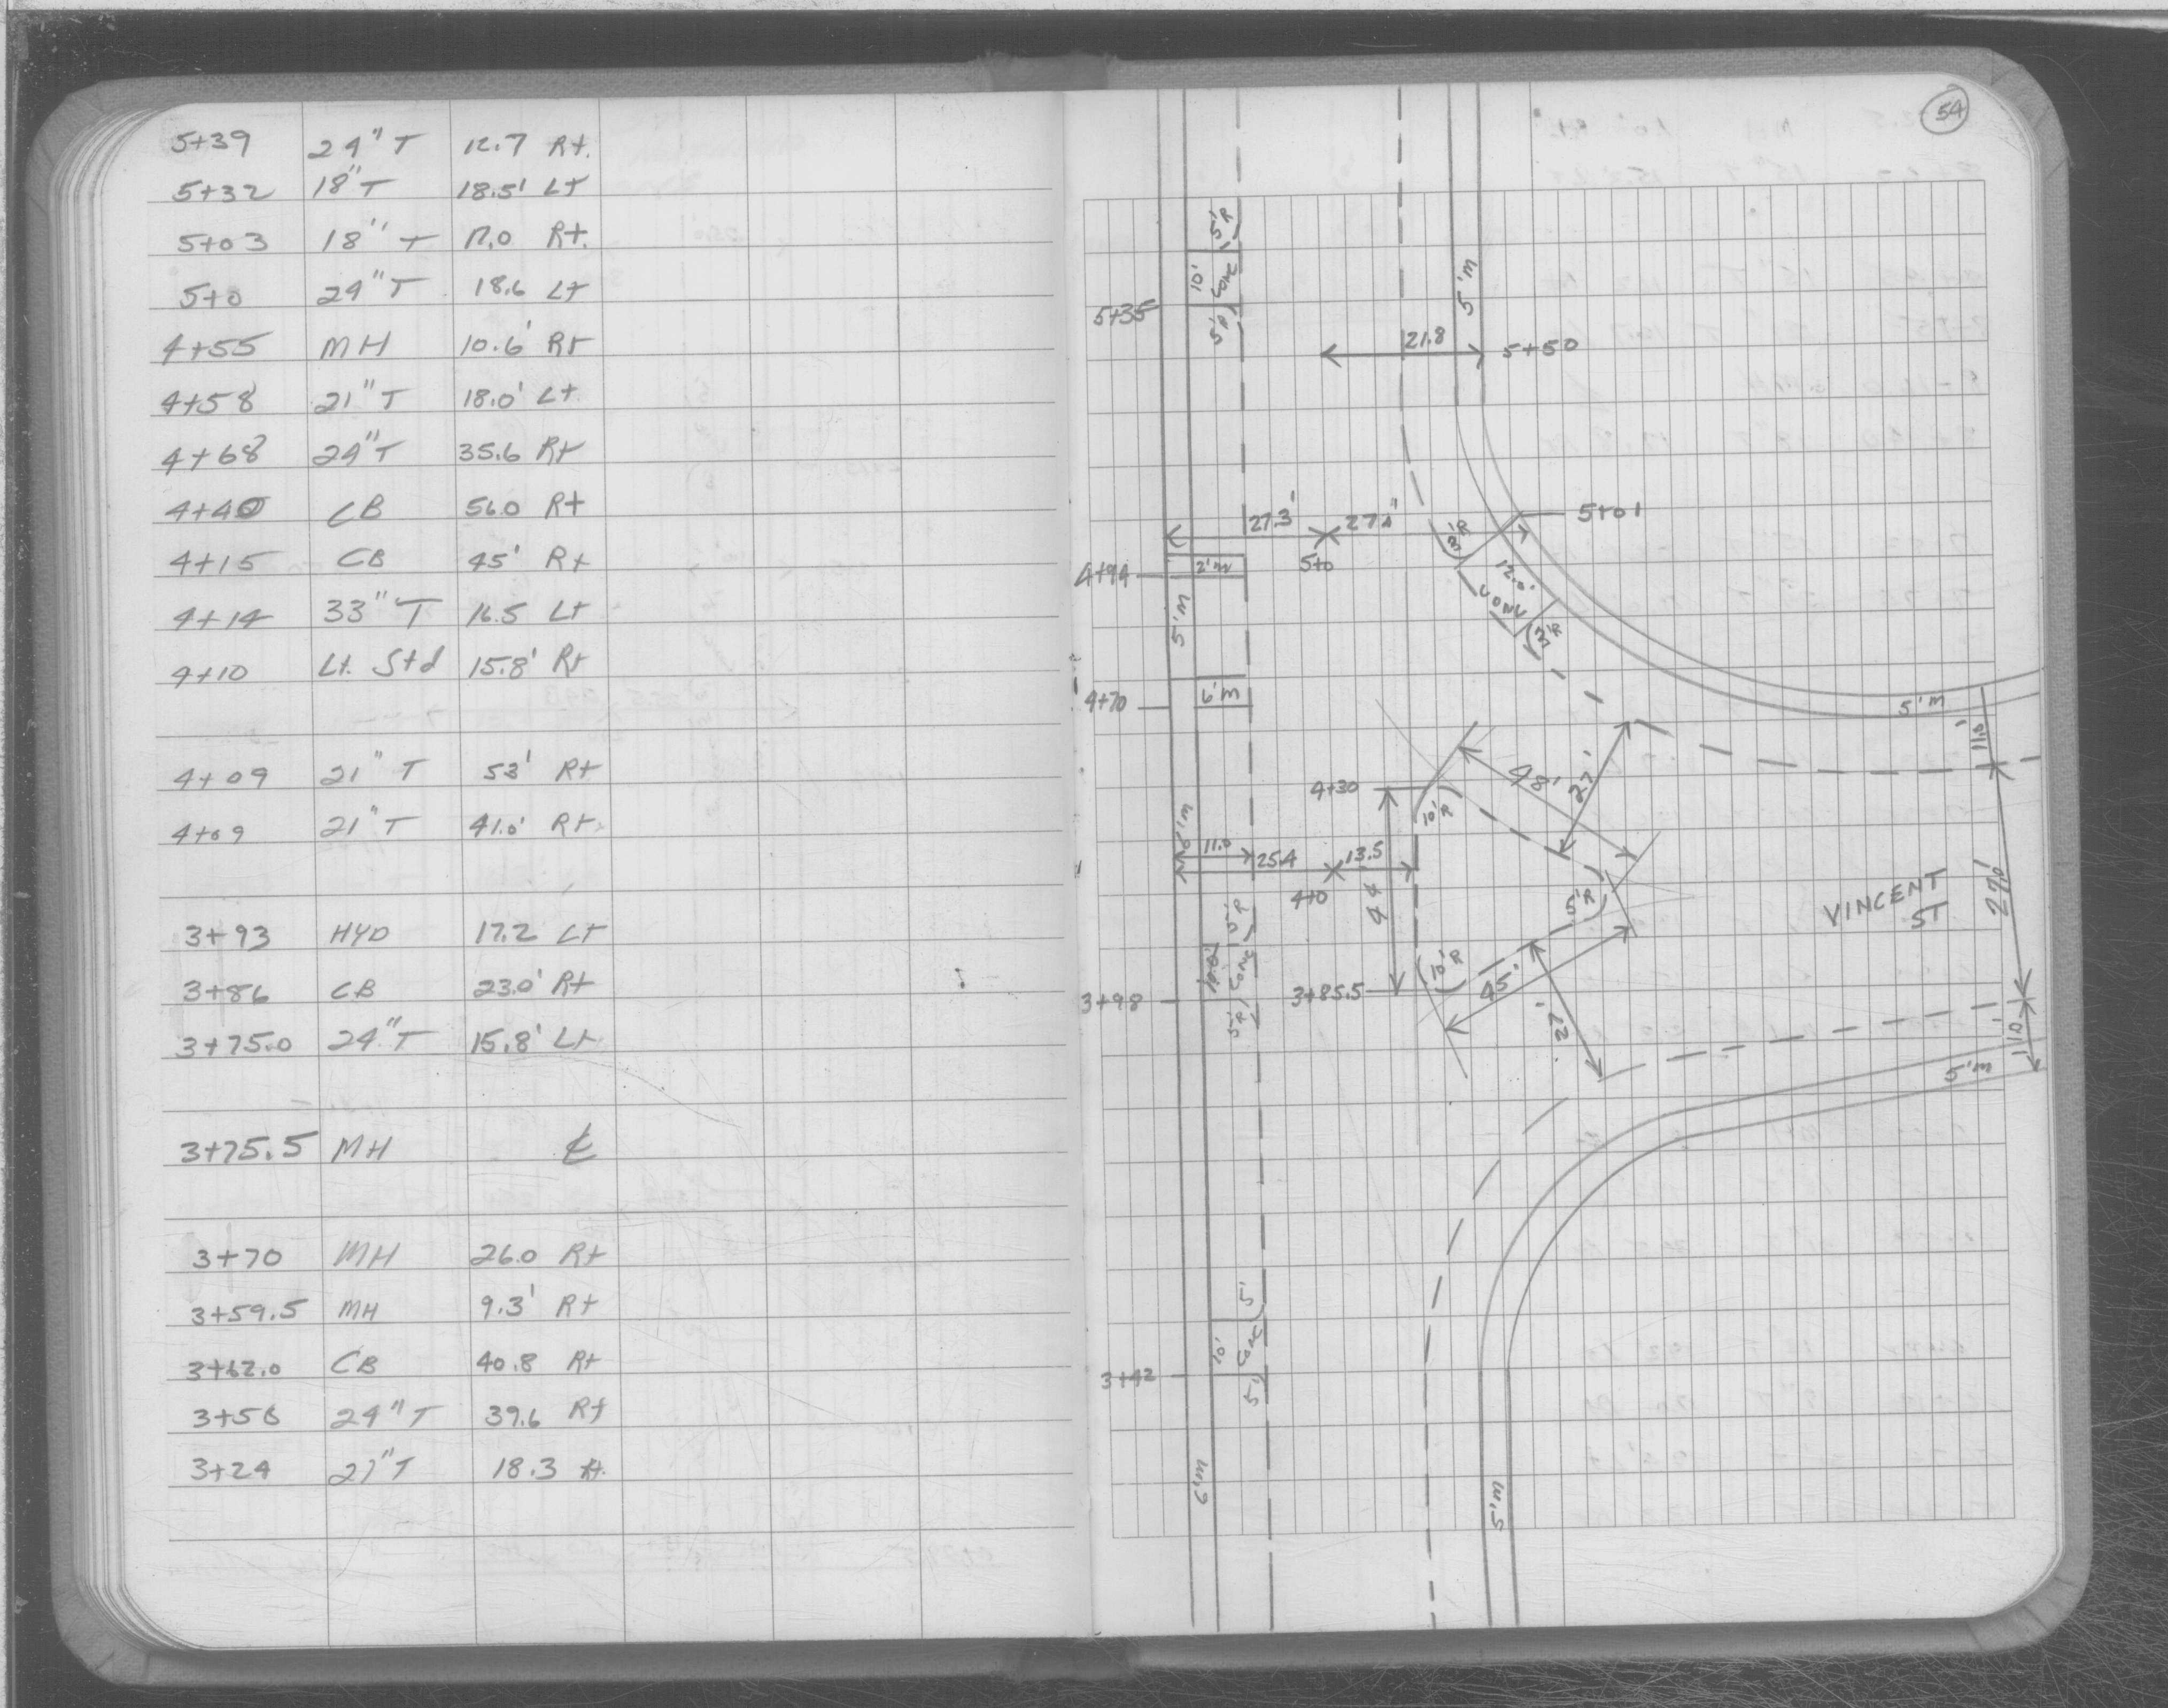 5+39 24" T 12.7 Rt.
5+32 18" T 18.5' Lt
5+03 18" T 17.0 Rt.
5+0 24" T 18.6 Lt
4+55 MH 10.6' Rt
4+58 21" T 18.0' Lt
4+68 24" T 35.6 Rt
4+40 CB 56.0 Rt
4+15 CB 45' Rt
4+14 33" T 16.5 Lt
4+10 Lt. Std 15.8' Rt
4+09 21" T 53' Rt
4+09 21" T 41.0' Rt
3+93 HYD 17.2 Lt
3+86 CB 23.0' Rt
3+75.0 24" T 15.8' Lt
3+75.5 MH ℄
3+70 MH 26.0 Rt
3+59.5 MH 9.3' Rt
3+62.0 CB 40.8 Rt
3+58 24" T 39.6 Rt
3+24 27" T 18.3
54
5'R
10' Conc
5'R
5+35
5'm
21.8
5+50
27.3'
5+0
3'R
12.0'
CONC
3'R
5+01
4+94
2'm
5'm
4+70
6'm
5'm
11.0'
48'
27'
4+30
10'R
6'm
11.0
25.4
13.5
4+0
44'
5'R
VINCENT
ST
27.0'
5'R
Conc
5'R
3+98
3+85.5
10'R
45'
27'
11.0'
5'm
5'
10' Conc
5'
3+42
6'm
5'm